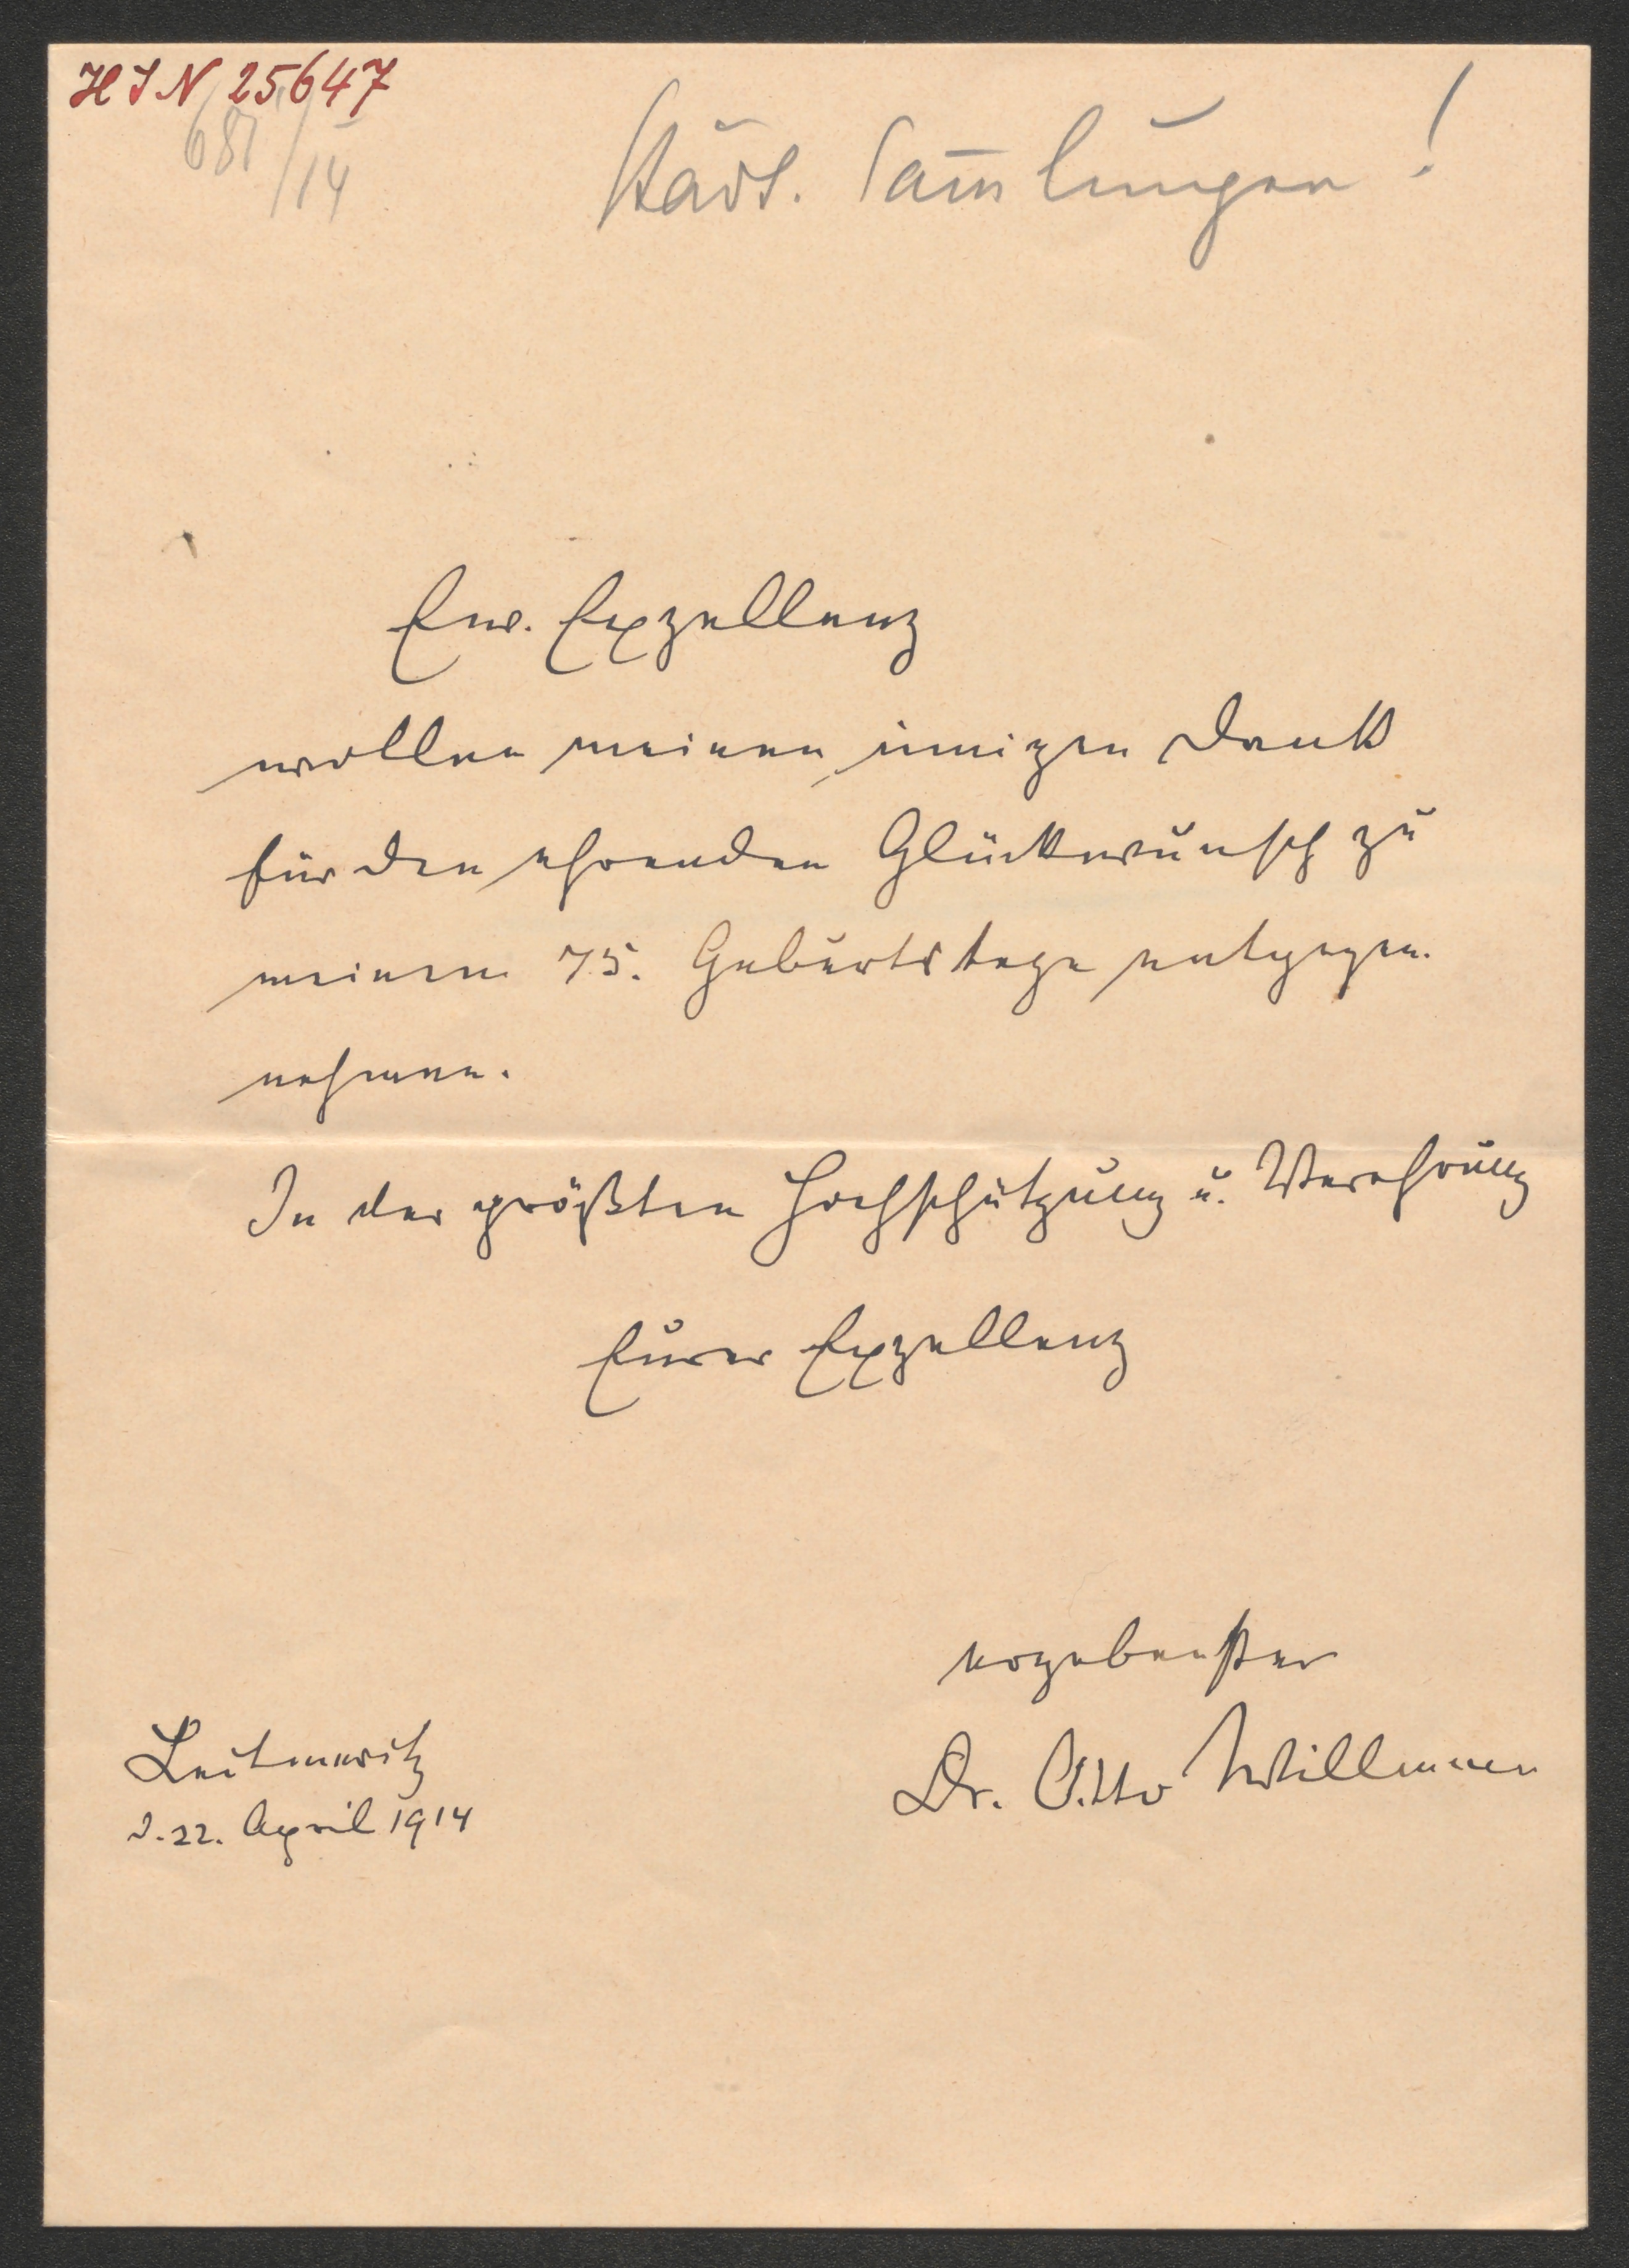 HIN 25647
681/14
Städt. Sam̅lungen!
Ew. Exzellenz
wollen meinen innigen Dank
für den ehrenden Glückwunsch zu
meinem 75. Geburtstage entgegen-
nehmen.
In der größten Hochschätzung u. Verehrung
Eurer Exzellenz
ergebenster
Dr. Otto Willmann
Leitmeritz
d. 22. April 1914